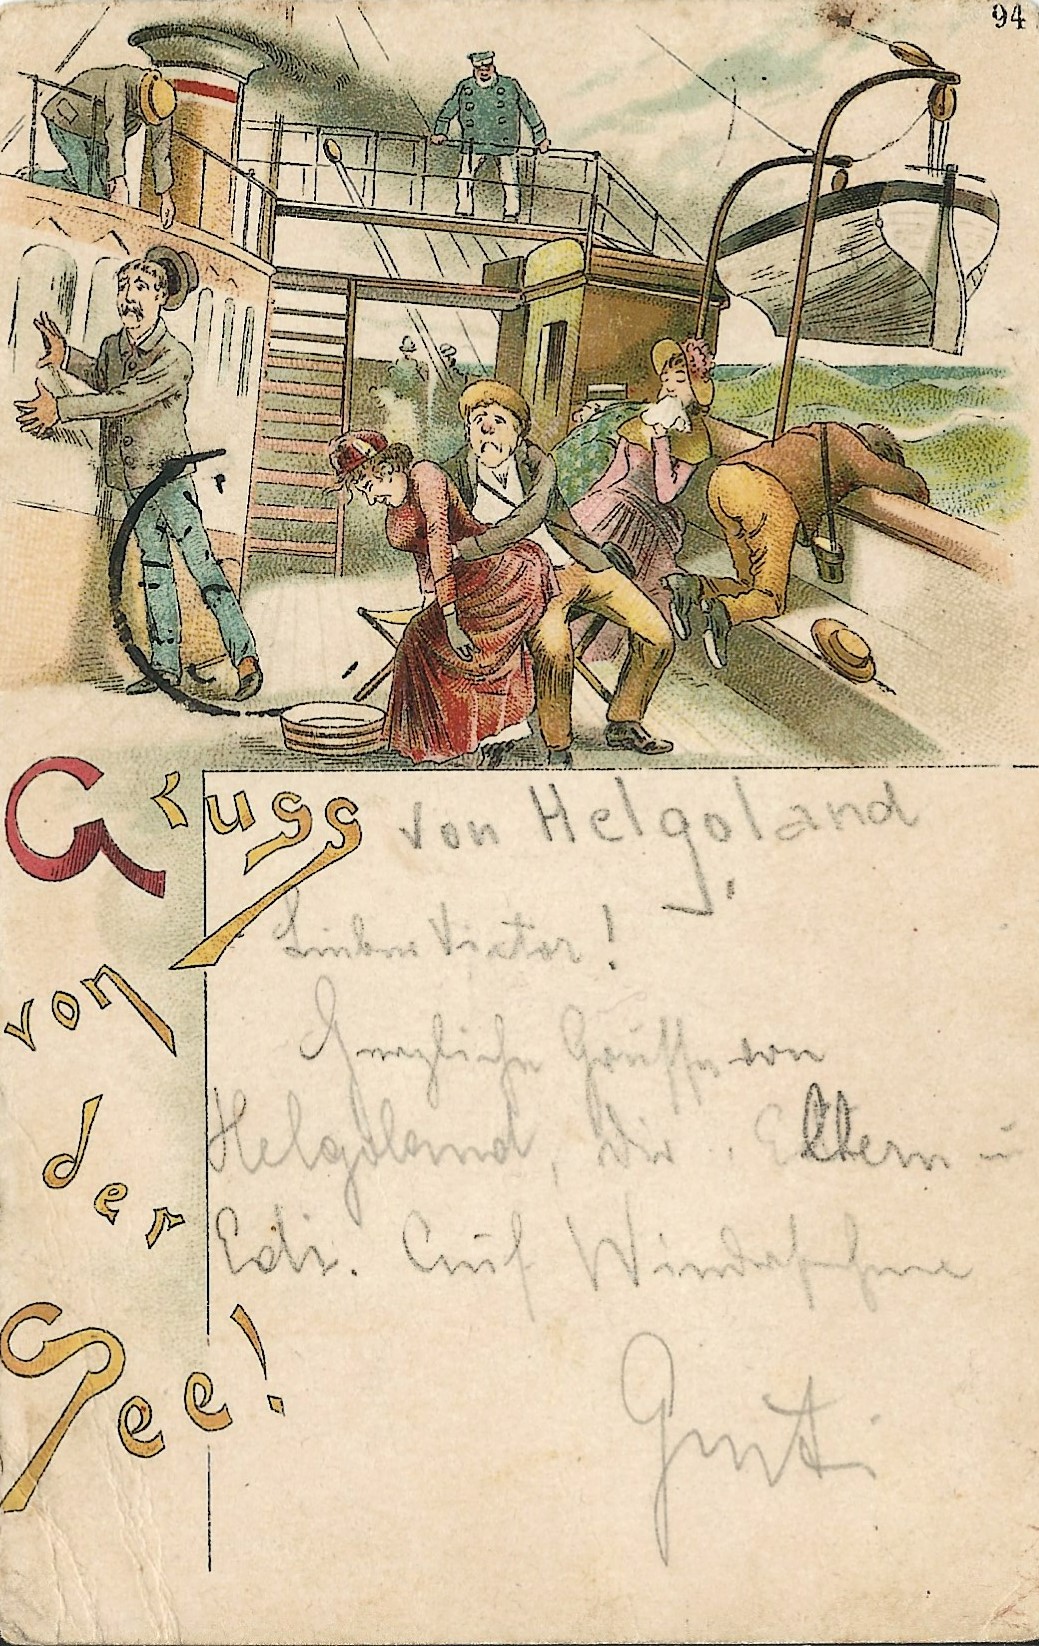 94
Gruss
von
der
See!
von Helgoland
Lieber Victor!
Herzliche Grüsse von
Helgoland, die Eltern u
Edi. Auf Wiedersehen